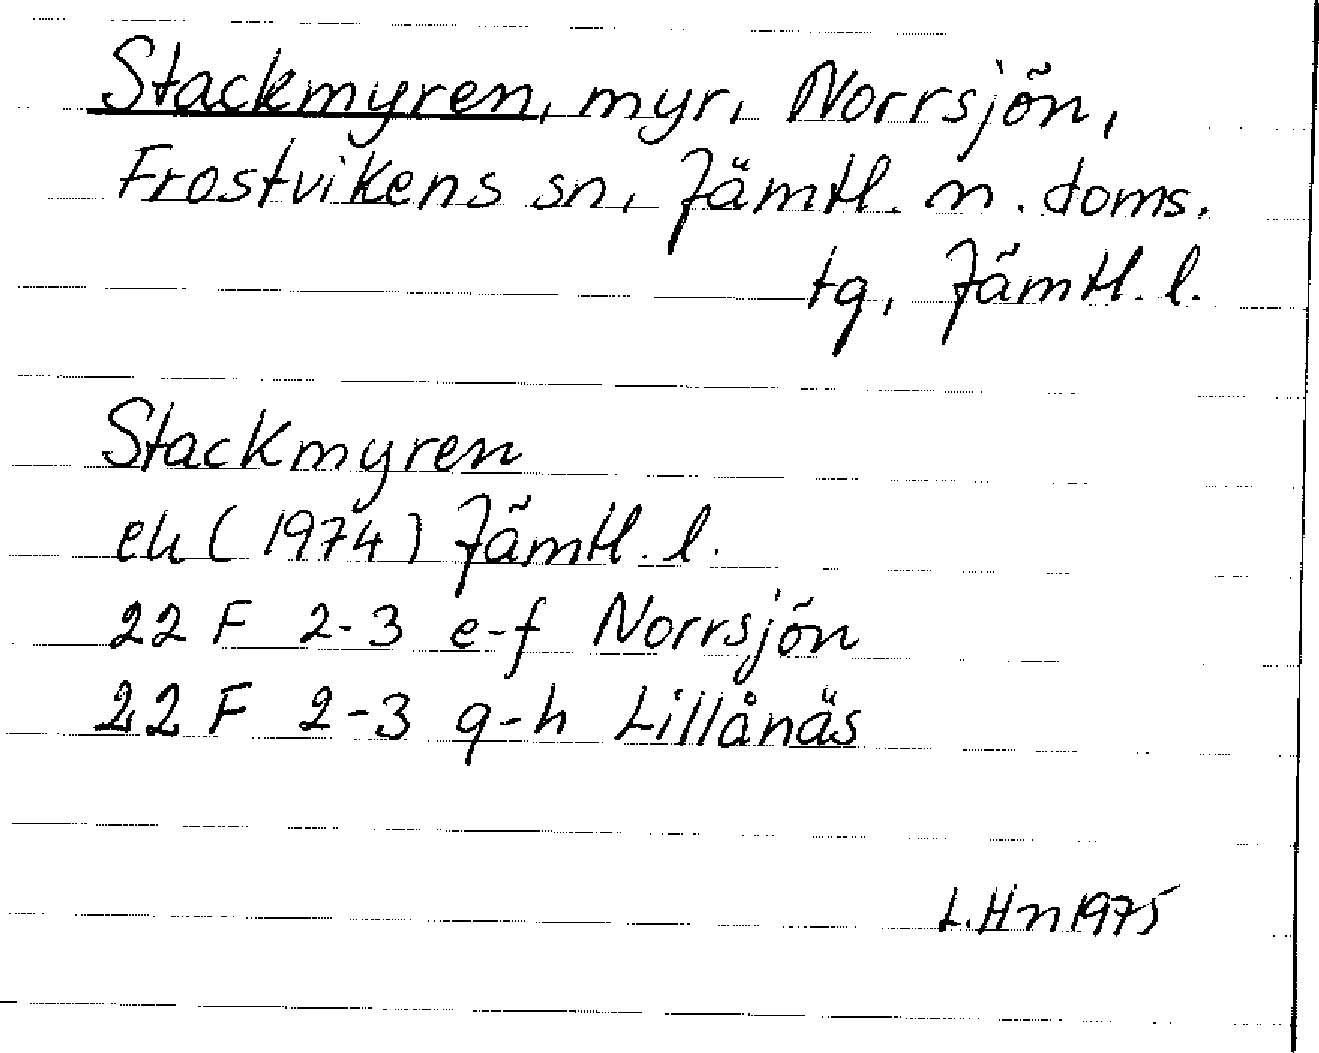 Stackmyren, myr, Norrsjön,
Frostvikens sn, Jämtl. n. doms.
tg, Jämtl. l.
Stackmyren
ek (1974) Jämtl. l.
22 F 2-3 e-f Norrsjön
22 F 2-3 g-h Lillånäs
L.Hn 1975